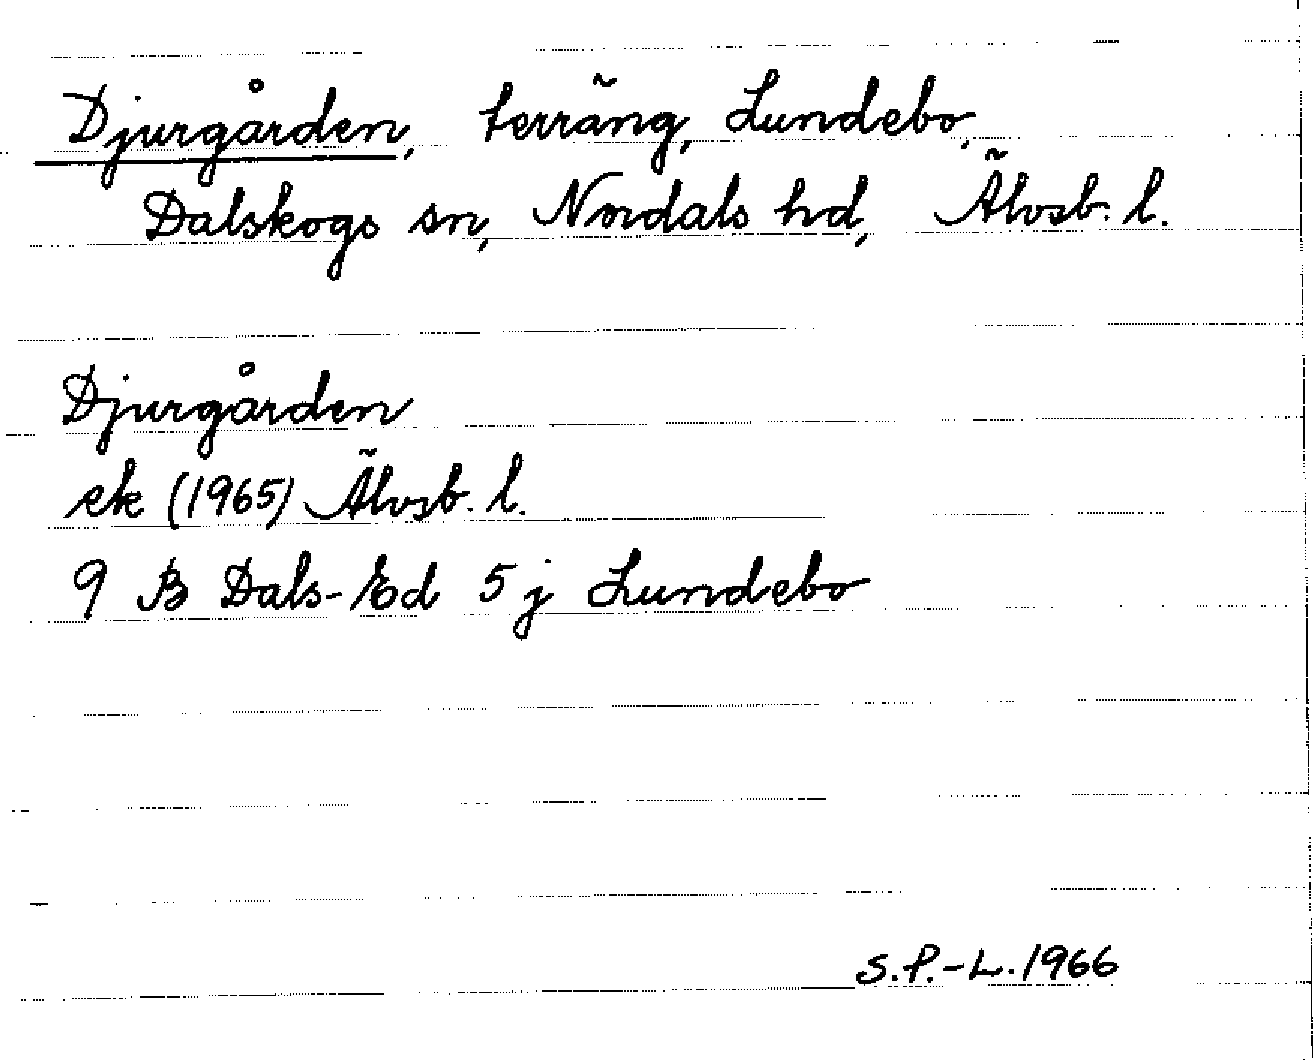 Djurgården, terräng, Lundebo,
Dalskogs sn, Nordals hd, Älvsb. l.
Djurgården
ek (1965) Älvsb. l.
9 B Dals-Ed 5 j Lundebo
S.P.-L. 1966